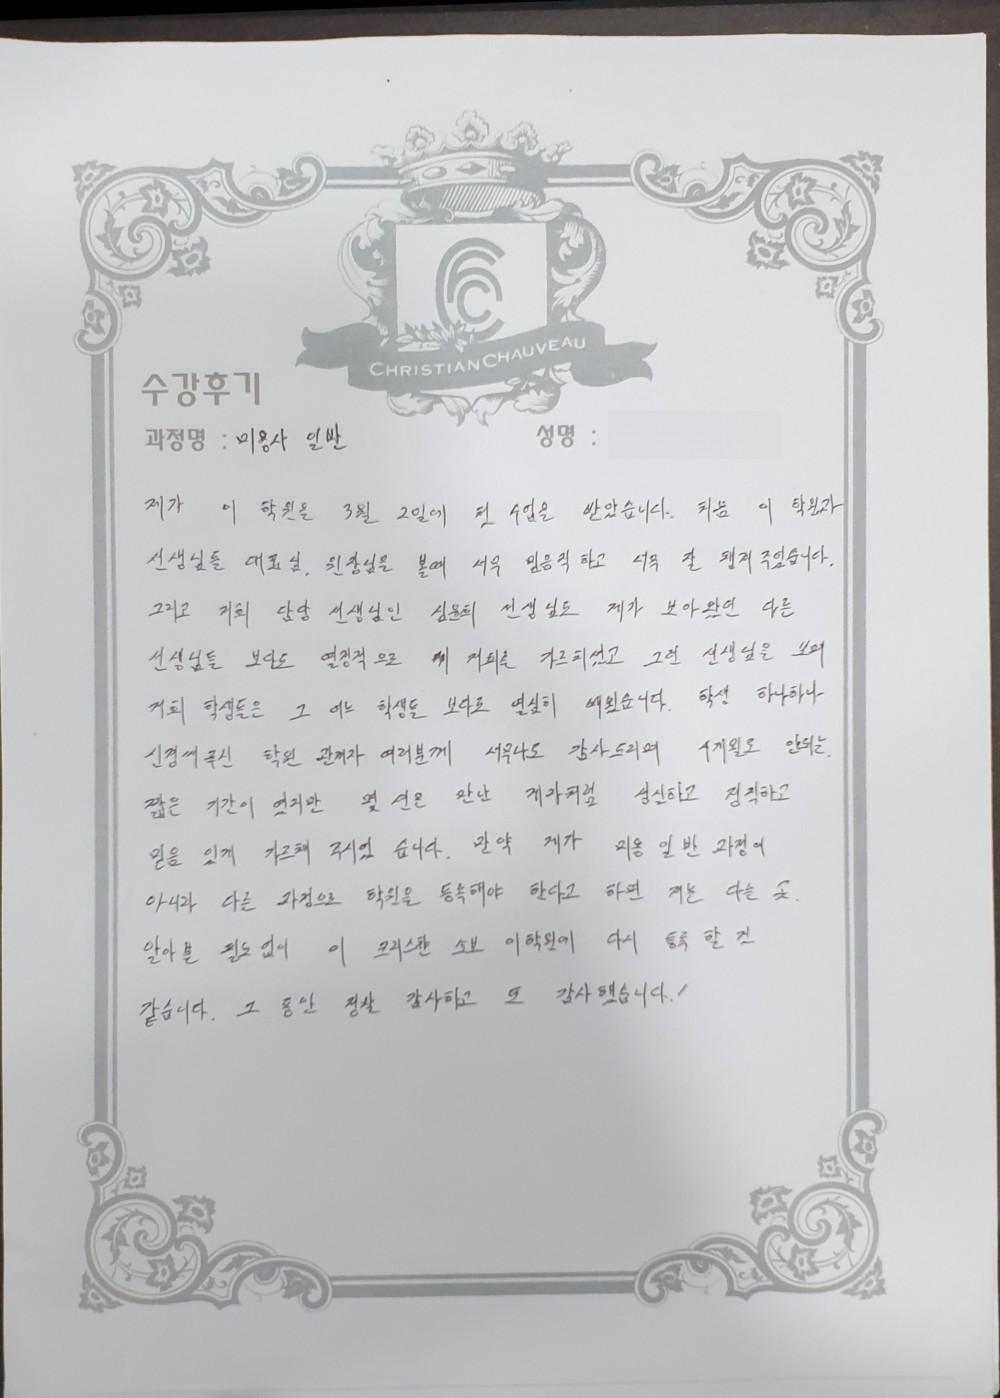 CHRISTIAN CHAUVEAU
수강후기
과정명 : 미용사 일반
성명 :
제가 이 학원을 3월 2일에 첫 수업을 받았습니다. 처음 이 학원과
선생님들 대표님, 원장님을 볼때 너무 믿음직하고 너무 잘 챙겨주었습니다.
그리고 저희 담당 선생님인 선생님도 제가 보아왔던 다른
선생님들 보다도 열정적으로 저희를 가르치셨고 그런 선생님을 보며
저희 학생들은 그 어느 학생들 보다도 열심히 배웠습니다. 학생 하나하나
신경써주신 학원 관계자 여러분께 너무나도 감사드리며 4개월도 안되는
짧은 기간이 였지만 몇 년은 만난 제자처럼 성실하고 정직하고
믿음 있게 가르쳐 주시었습니다. 만약 제가 미용 일반 과정이
아니라 다른 과정으로 학원을 등록해야 한다고 하면 저는 다른 곳
알아볼 필요없이 이 크리스챤 쇼보 이학원에 다시 등록 할 것
같습니다. 그 동안 정말 감사하고 또 감사했습니다.!